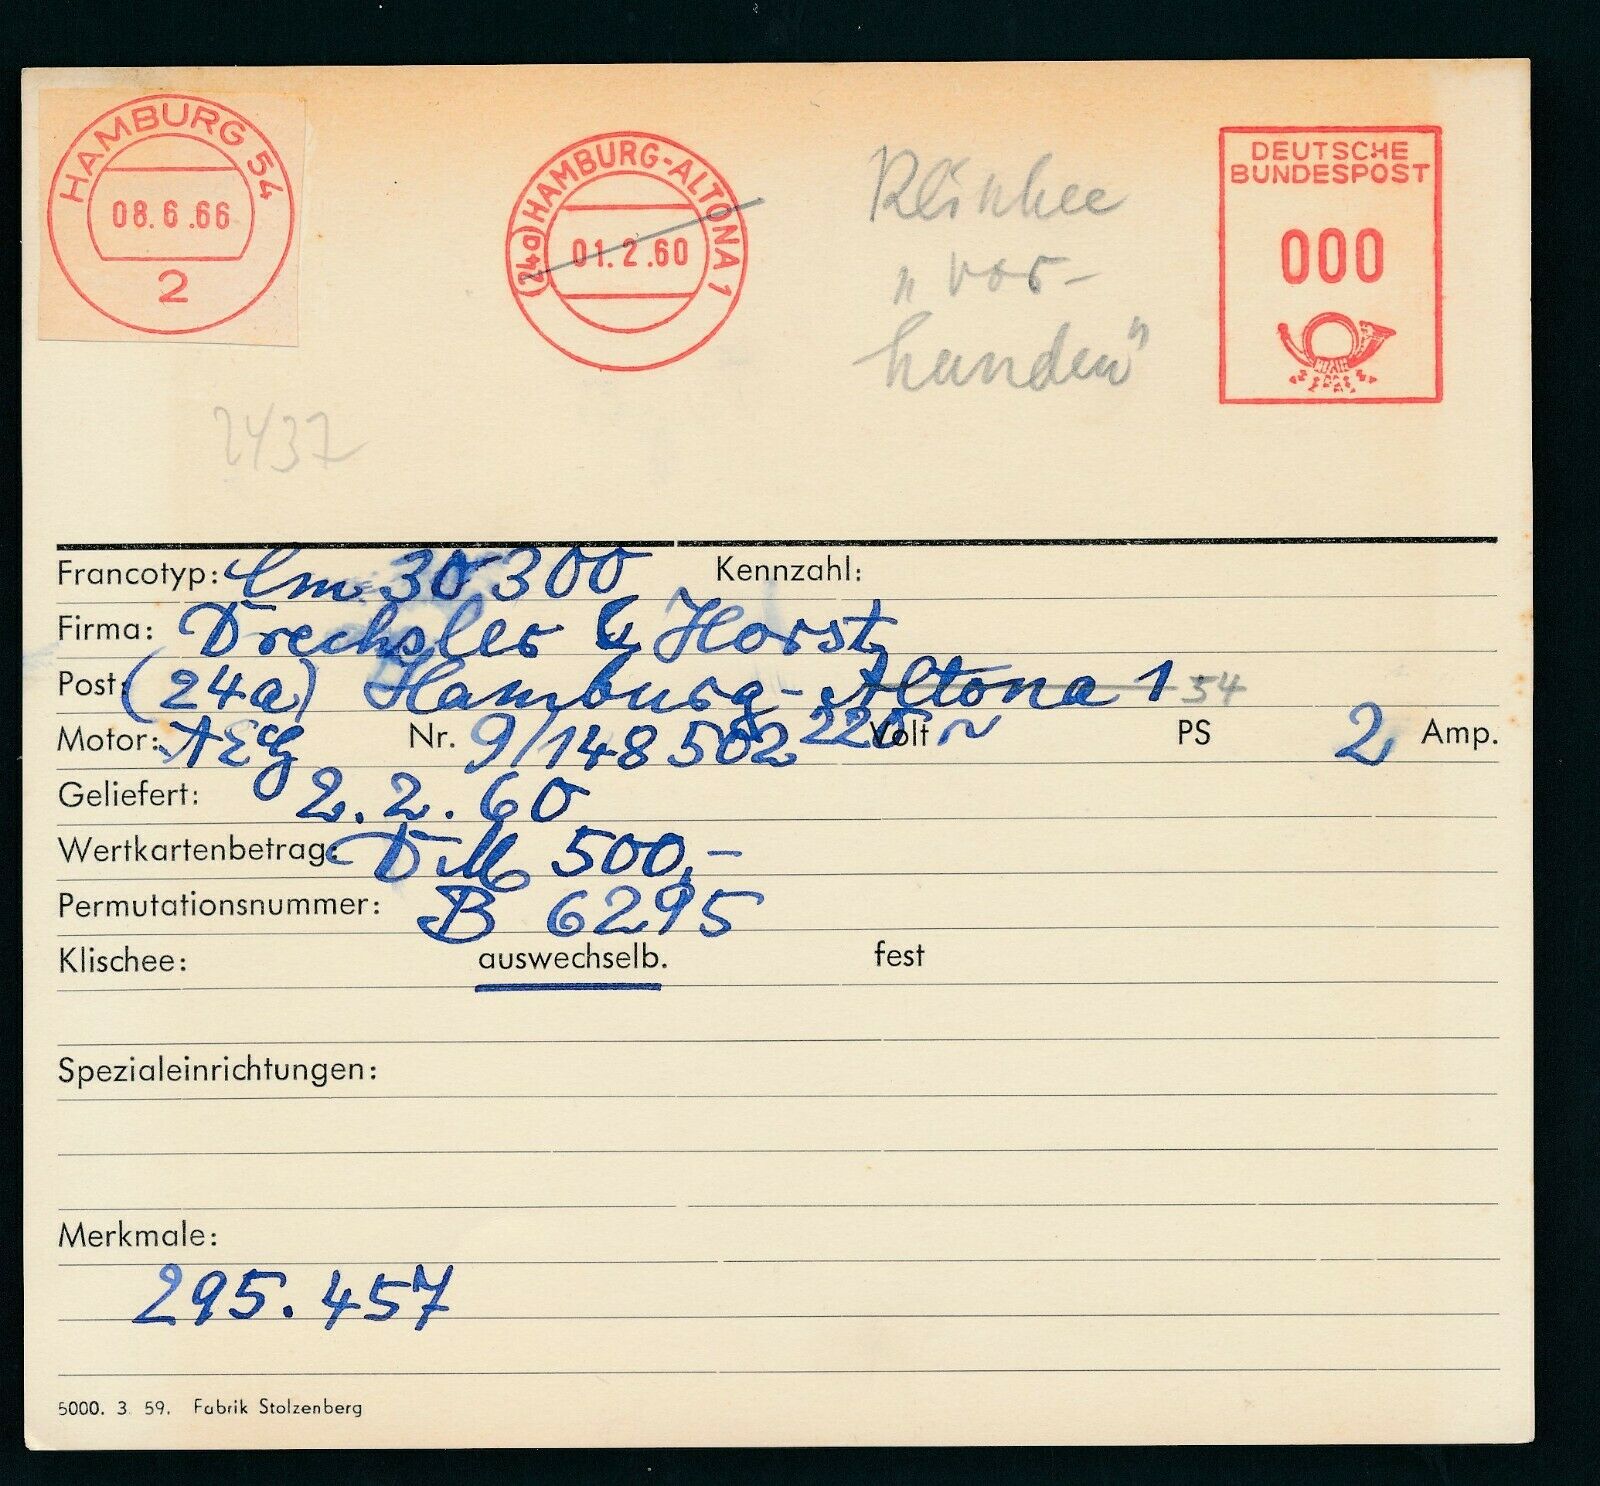 HAMBURG 54
08.6.66
2
(24a) HAMBURG-ALTONA 1
01.2.60
Klischee
"vor-
handen"
DEUTSCHE
BUNDESPOST
000
2437
Francotyp: Cm 30300 Kennzahl:
Firma: Drechsler & Horst
Post: (24a) Hamburg-Altona 1 54
Motor: AEG Nr. 9/148502 220 Volt ~ PS 2 Amp.
Geliefert: 2.2.60
Wertkartenbetrag: DM 500,-
Permutationsnummer: B 6295
Klischee: auswechselb. fest
Spezialeinrichtungen:
Merkmale:
295.457
5000. 3. 59. Fabrik Stolzenberg